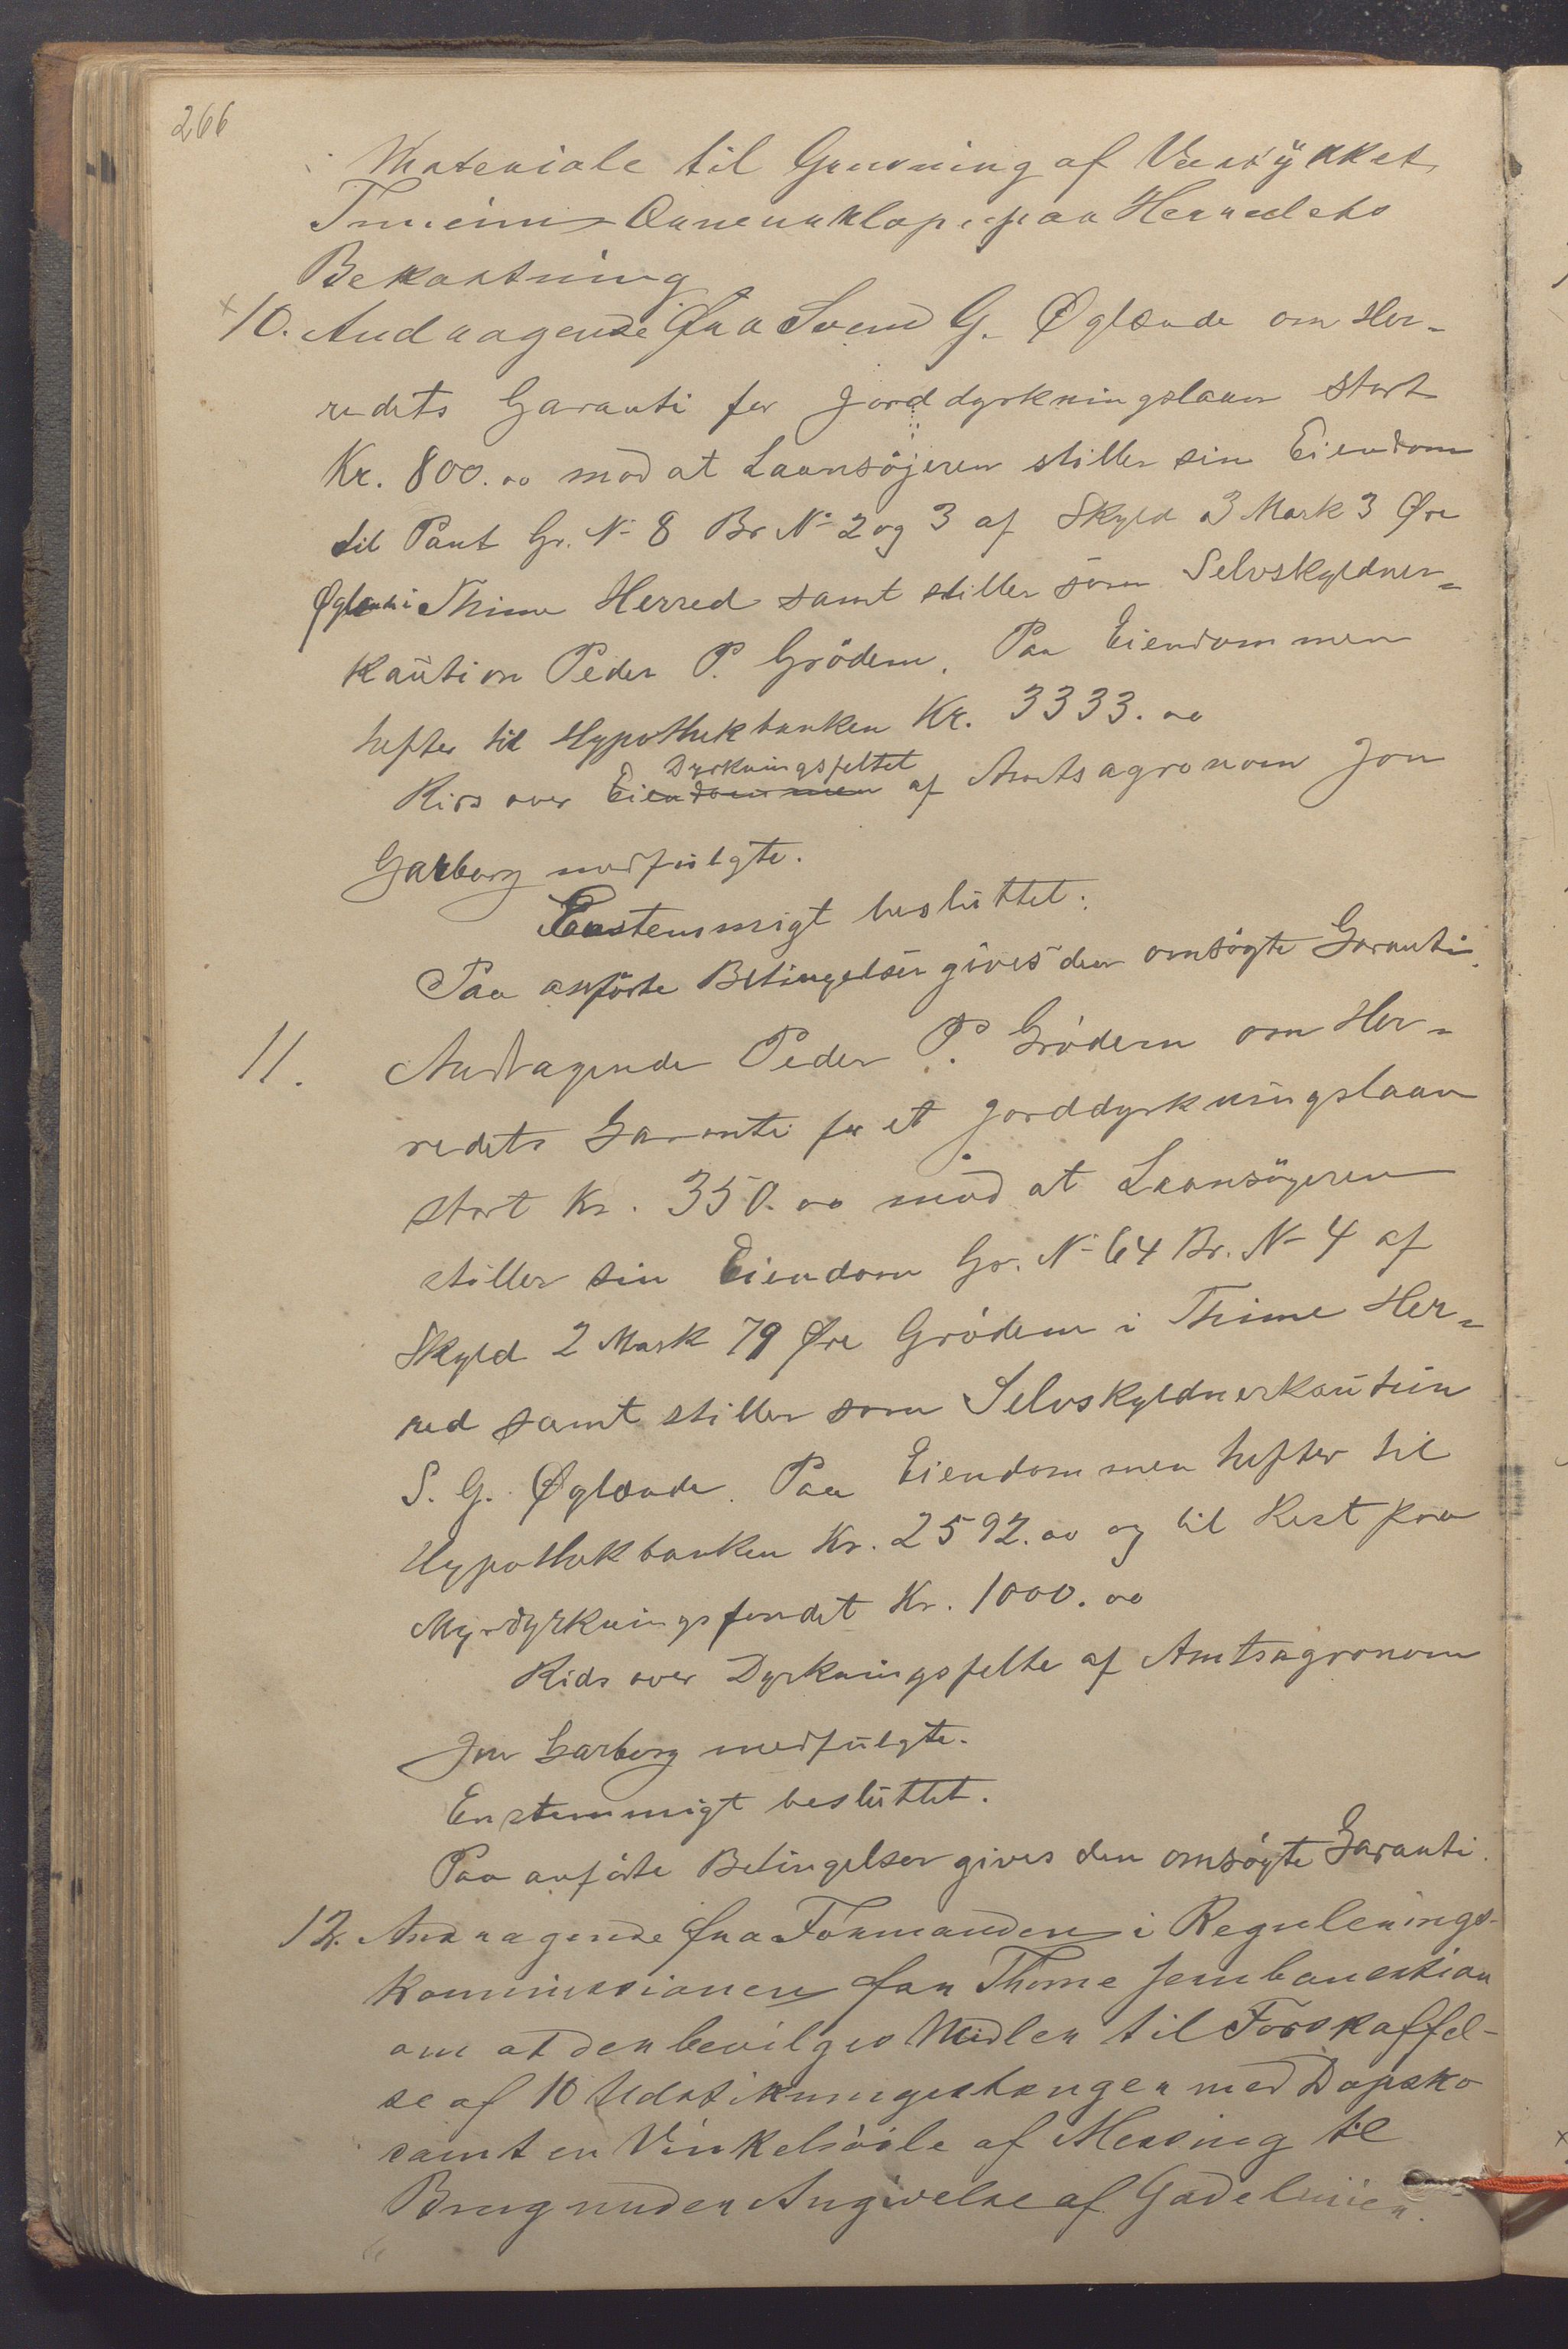 266
Materiale til Grusning af Veistykket
Tuneim Orreruklop paa Herredets
Bekostning
x 10. Andragende fra Svend G. Øglænde om Her-
redets Garanti for Jorddyrkningslaan stort
Kr. 800.00 mod at Laansøjeren stiller sin Eiendom
til Pant Gr. No 8 Br No 2 og 3 af Skyld 3 Mark 3 Øre
Øglænd i Thime Herred samt stiller som Selvskyldner-
kaution Peder P. Grödem. Paa Eiendommen
hefter til Hypothekbanken Kr. 3333.00
Dyrkningsfeltet
Rids over Eiendommen af Amtsagronom Jon
Garborg medfulgte.
Enstemmigt besluttet:
Paa anførte Betingelser gives den omsøgte Garanti.
11. Andragende Peder P. Grödem om Her-
redets Garanti for et Jorddyrkningslaan
stort Kr. 350.00 mod at Laansøgeren
stiller sin Eiendom Gr. No 64 Br. No 4 af
Skyld 2 Mark 79 Øre Grödem i Thime Her-
red samt stiller som Selvskyldnerkaution
S. G. Øglænde. Paa Eiendommen hefter til
Hypothekbanken Kr. 2592.00 og til Rest paa
Myrdyrkningsfondet Kr. 1000.00
Rids over Dyrkningsfelte af Amtsagronom
Jon Garborg medfulgte.
Enstemmigt besluttet.
Paa anførte Betingelser gives den omsøgte Garanti.
12. Andragende fra Formanden i Regulerings-
kommissionen for Thime Jernbanestion
om at der bevilges Midler til Forskaffel-
se af 10 Udstikningsstænger med Dopsko
samt en Vinkelsöile af Messing til
Brug under Angivelse af Gadelinier.